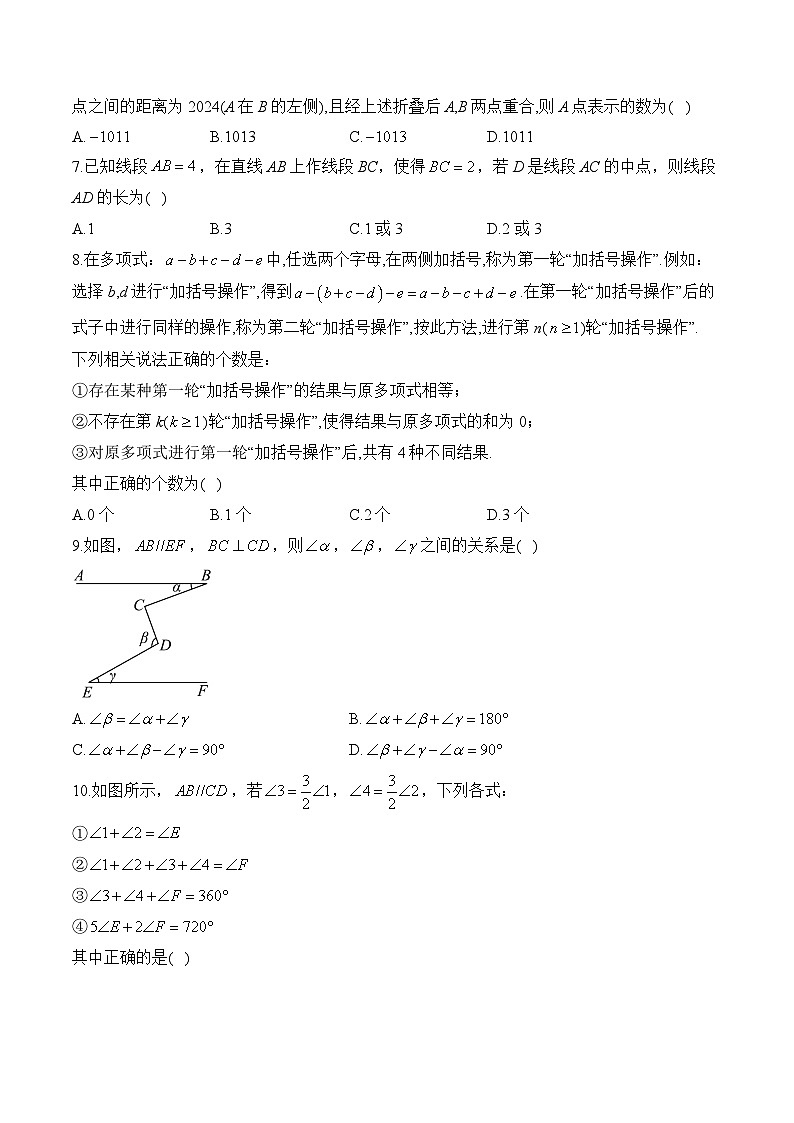 点之间的距离为 2024(A在B的左侧),且经上述折叠后A,B两点重合,则A点表示的数为( )
A. −1011 B.1013 C.−1013 D.1011
7.已知线段 AB = 4，在直线AB上作线段BC，使得 BC = 2，若D是线段AC的中点，则线段
AD的长为( )
A.1 B.3 C.1或3 D.2或3
8.在多项式：a−b+c−d−e中,任选两个字母,在两侧加括号,称为第一轮“加括号操作”.例如：
选择b,d进行“加括号操作”,得到a−(b+c−d)−e=a−b−c+d−e.在第一轮“加括号操作”后的
式子中进行同样的操作,称为第二轮“加括号操作”,按此方法,进行第n(n≥1)轮“加括号操作”.
下列相关说法正确的个数是：
①存在某种第一轮“加括号操作”的结果与原多项式相等；
②不存在第k(k≥1)轮“加括号操作”,使得结果与原多项式的和为0；
③对原多项式进行第一轮“加括号操作”后,共有4种不同结果.
其中正确的个数为( )
A.0个 B.1个 C.2个 D.3个
9.如图，AB//EF，BC⊥CD，则∠α，∠β，∠γ之间的关系是( )
A B
α
C
β D
γ
E F
A.∠β=∠α+∠γ B.∠α+∠β+∠γ=180°
C.∠α+∠β−∠γ=90° D.∠β+∠γ−∠α=90°
10.如图所示，AB//CD，若∠3=3/2∠1，∠4=3/2∠2，下列各式：
①∠1+∠2=∠E
②∠1+∠2+∠3+∠4=∠F
③∠3+∠4+∠F=360°
④5∠E+2∠F=720°
其中正确的是( )